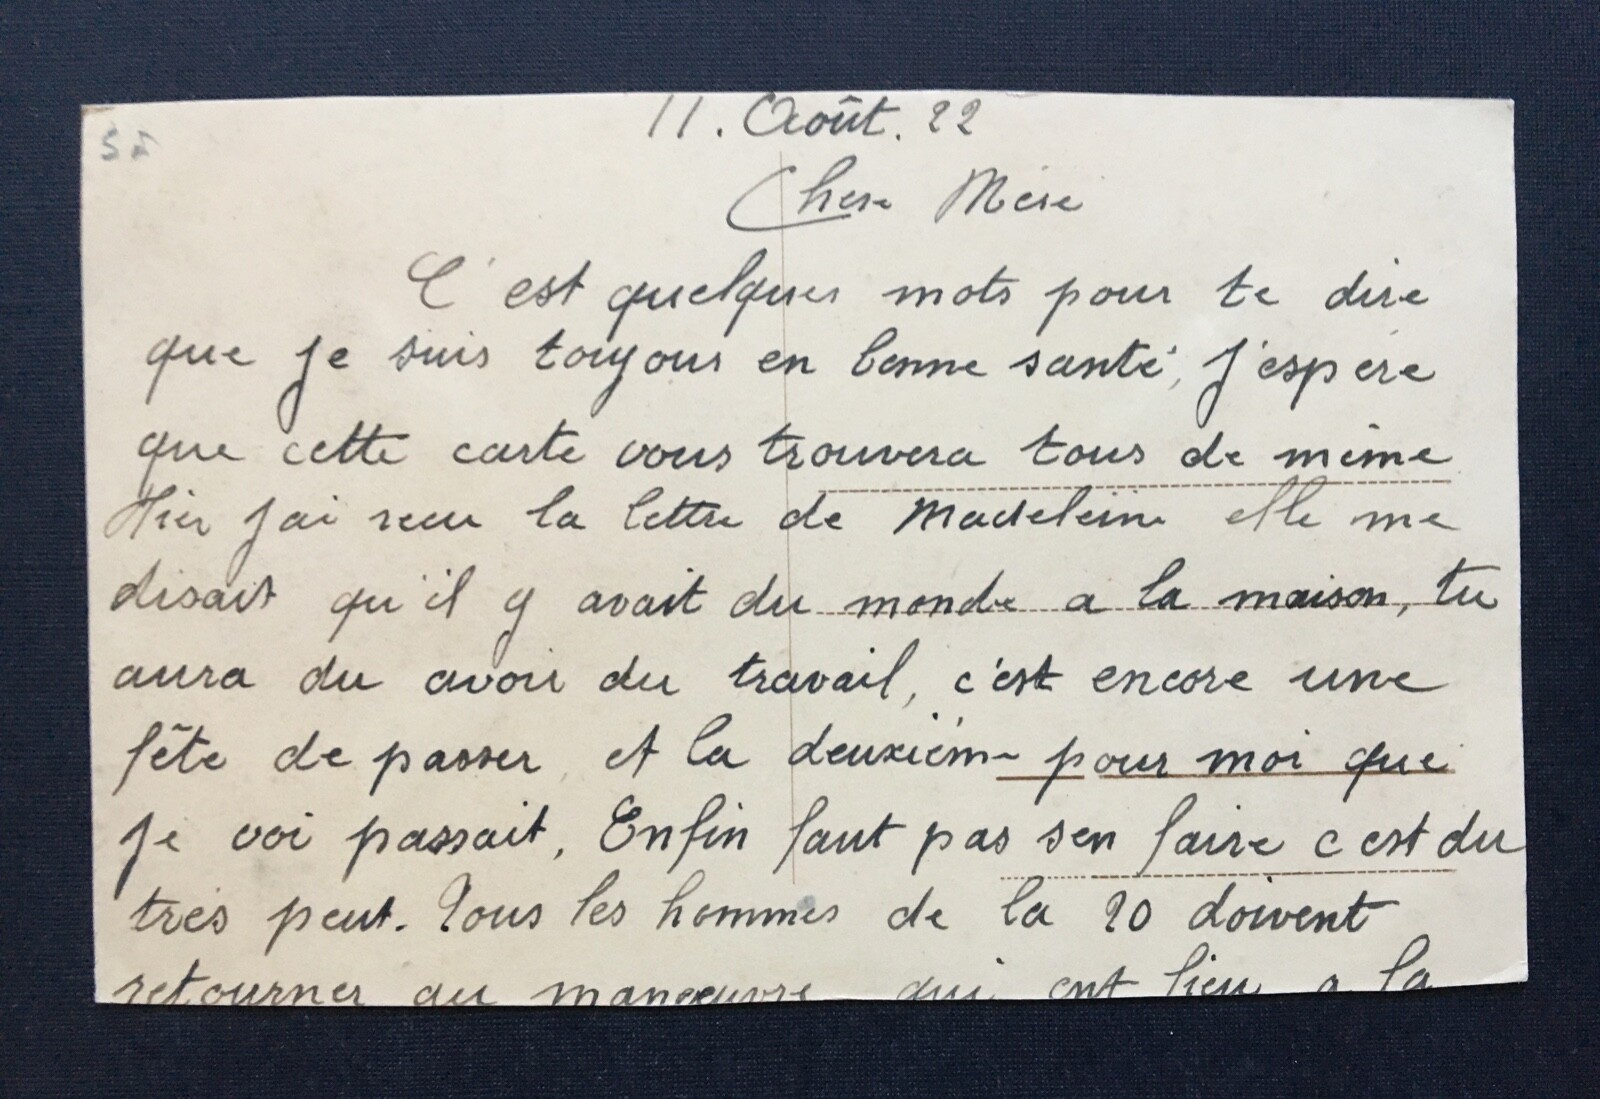 11. Août. 22
Chere Mère
C'est quelques mots pour te dire
que je suis toujours en bonne santé, j'espère
que cette carte vous trouvera tous de même
Hier j'ai recu la lettre de Madeleine elle me
disait qu'il y avait du monde a la maison, tu
aura du avoir du travail, c'est encore une
fête de passer, et la deuxième pour moi que
je voi passait, Enfin faut pas sen faire c est du
très peut. Tous les hommes de la 20 doivent
retourner au manoeuvre qui ont lieu a la